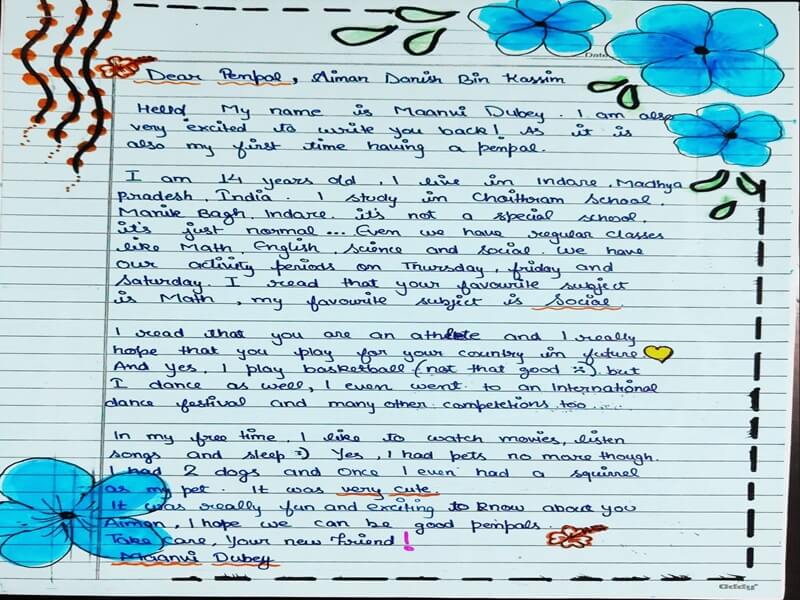 Date
Dear Penpal, Aiman Danish Bin Kassim
Hello! My name is Maanvi Dubey. I am also
very excited to write you back! As it is
also my first time having a penpal.
I am 14 years old, I live in Indore, Madhya
Pradesh, India. I study in Choithram School,
Manik Bagh, Indore. it's not a special school,
it's just normal... Even we have regular classes
like Math, English, science and social. we have
our activity periods on Thursday, friday and
saturday. I read that your favourite subject
is Math, my favourite subject is Social.
I read that you are an athlete and I really
hope that you play for your country in future.
And yes, I play basketball (not that good :() but
I dance as well, I even went to an International
dance festival and many other competetions too.....
In my free time, I like to watch movies, listen
songs and sleep :) Yes, I had pets no more though.
I had 2 dogs and once I even had a squirrel
as my pet. It was very cute.
It was really fun and exciting to know about you
Aiman, I hope we can be good penpals.
Take care, Your new friend!
Maanvi Dubey
Oddy